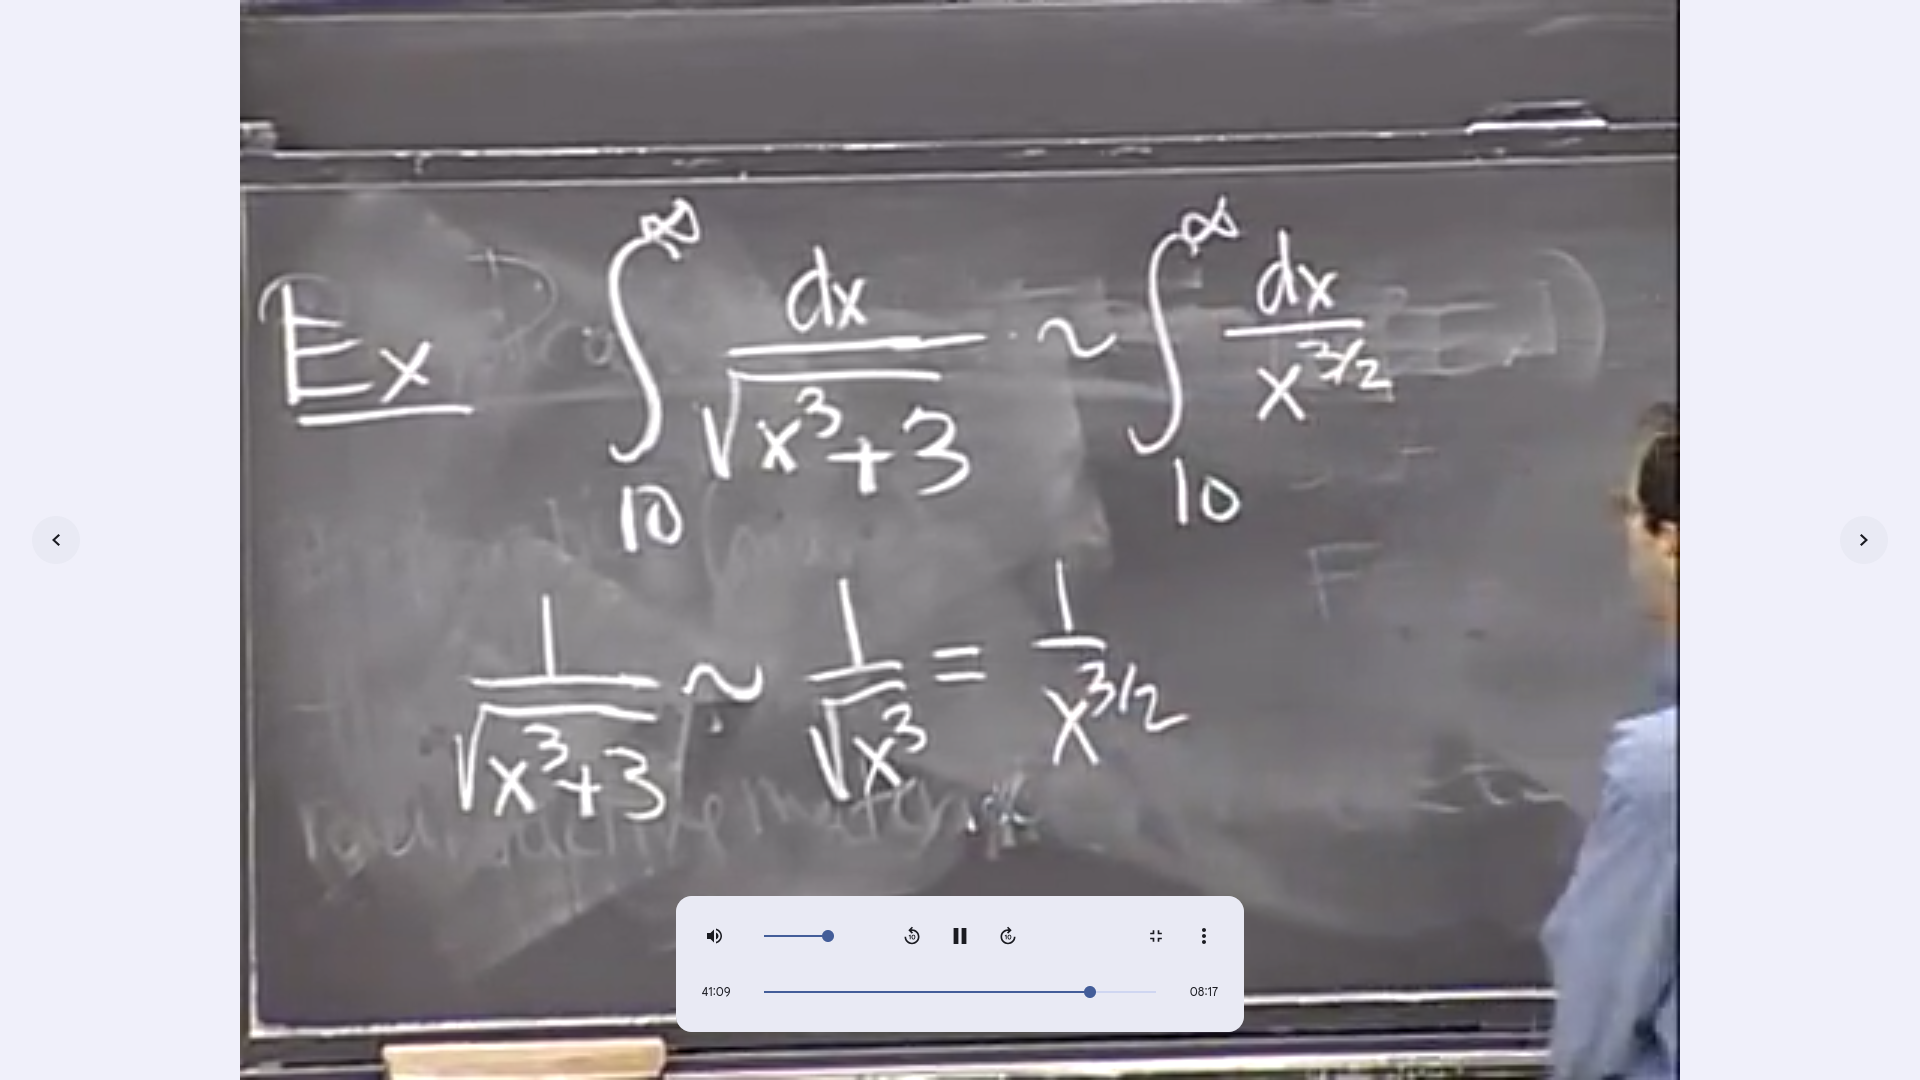 Ex ∫₁₀^∞ dx/√(x³+3) ~ ∫₁₀^∞ dx/x^(3/2)
1/√(x³+3) ~ 1/√x³ = 1/x^(3/2)
41:09 08:17